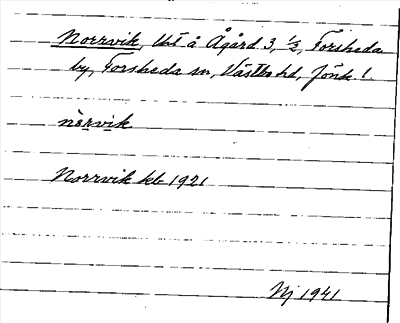 Norrvik, lht å Ågård 3, 1/2, Forsheda
by, Forsheda sn, Västbo hd, Jönk. l.
nȯrvik
Norrvik kb 1921
Nj 1941